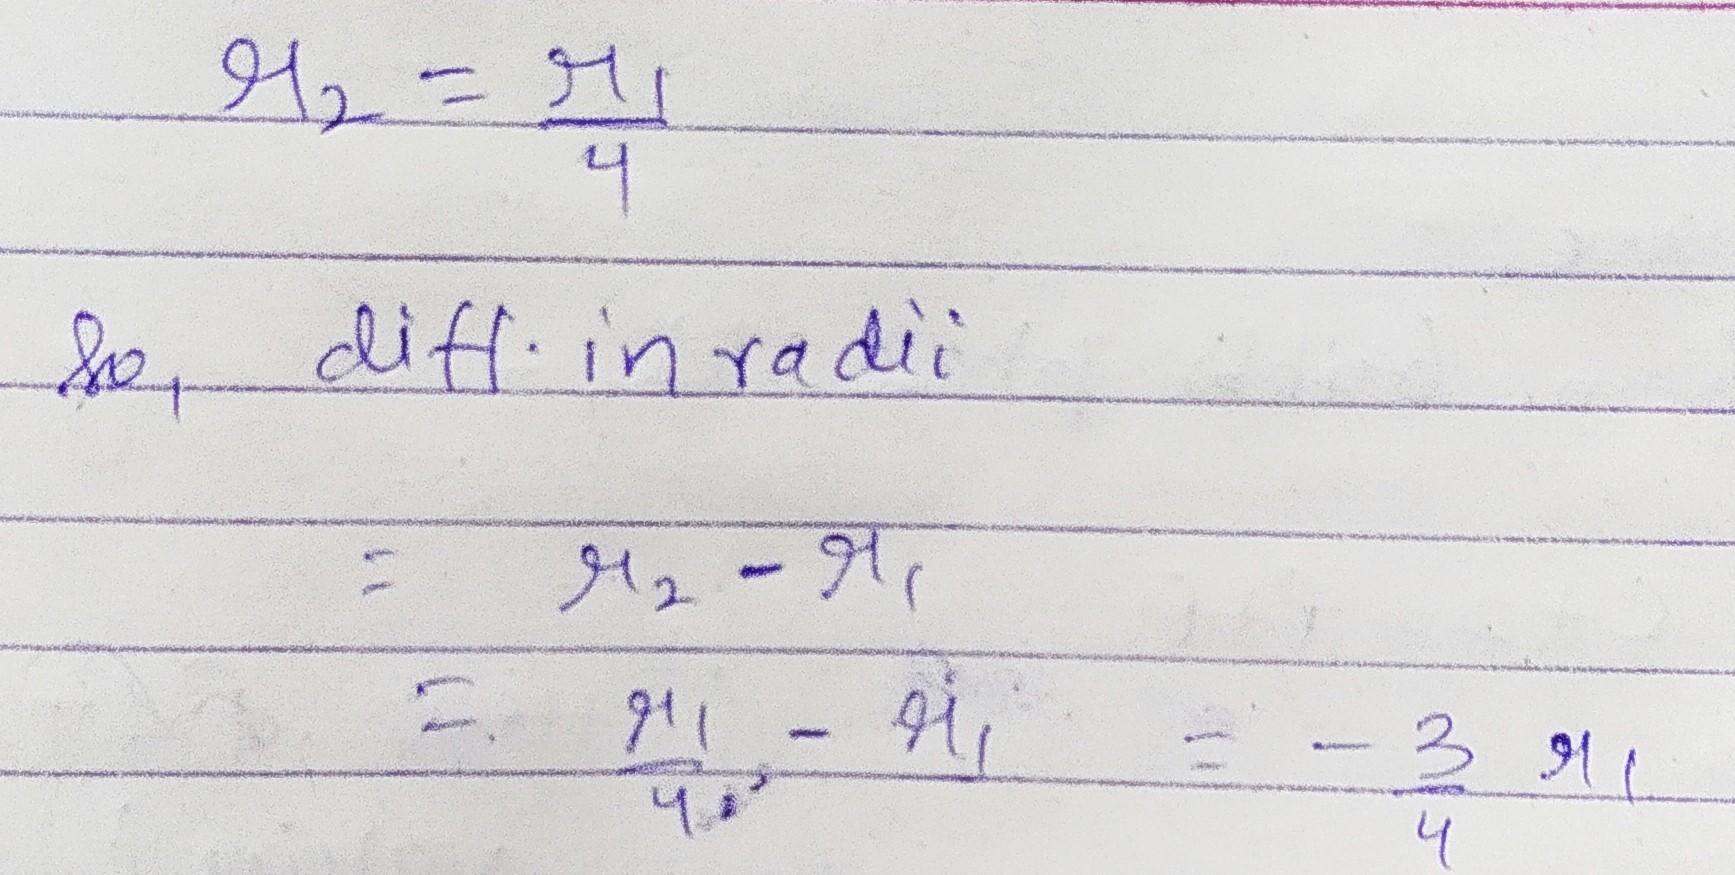 r₂ = r₁/4
So, diff. in radii
= r₂ - r₁
= r₁/4 - r₁ = - 3/4 r₁